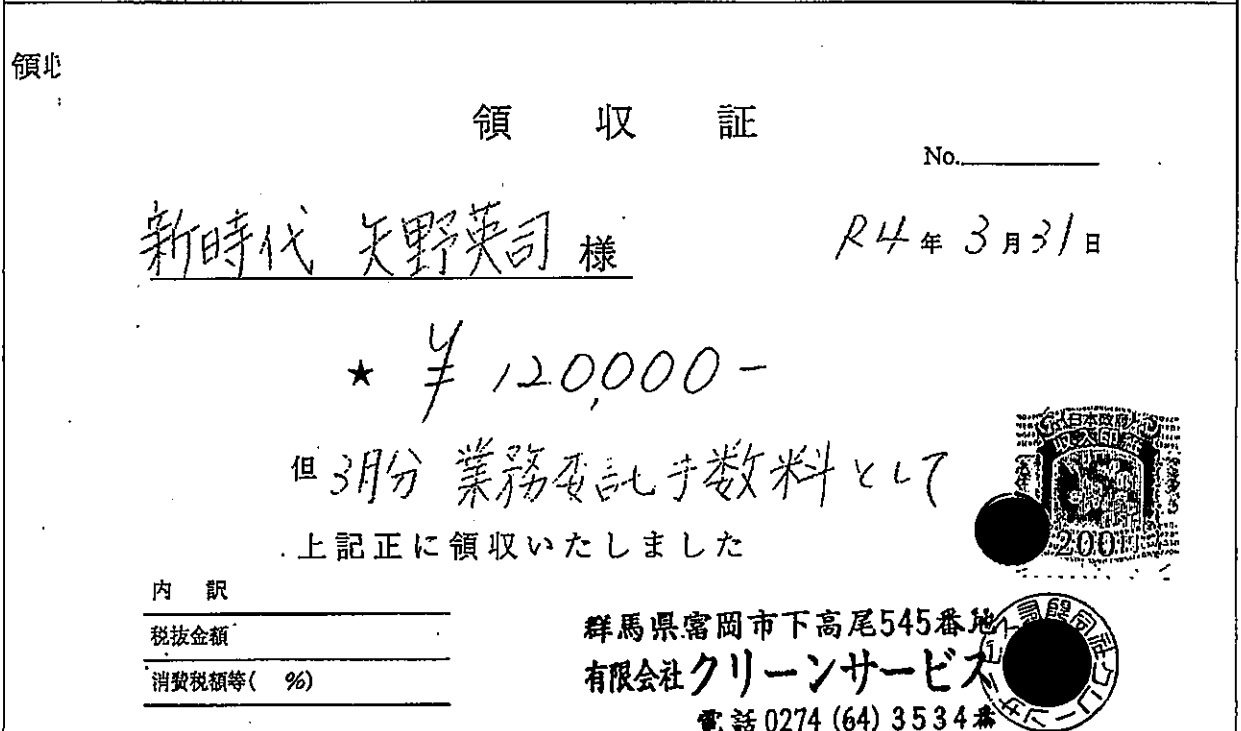 領収
領収証
No.
新時代 矢野英司 様
R4年3月31日
★ ¥120,000-
但 3月分 業務委託手数料として
上記正に領収いたしました
日本政府
200円
内訳
税抜金額
消費税額等( %)
群馬県富岡市下高尾545番地
有限会社クリーンサービス
電話 0274 (64) 3534番